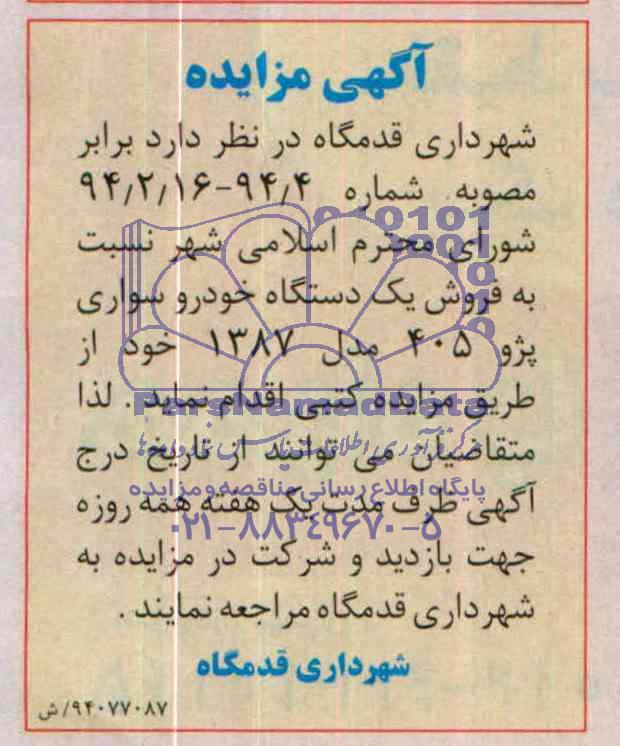 آگهی مزایده
شهرداری قدمگاه در نظر دارد برابر
مصوبه شماره ۹۴/۴-۹۴/۲/۱۶
شورای محترم اسلامی شهر نسبت
به فروش یک دستگاه خودرو سواری
پژو ۴۰۵ مدل ۱۳۸۷ خود از
طریق مزایده کتبی اقدام نماید. لذا
متقاضیان می توانند از تاریخ درج
آگهی ظرف مدت یک هفته همه روزه
جهت بازدید و شرکت در مزایده به
شهرداری قدمگاه مراجعه نمایند.
شهرداری قدمگاه
۹۴۰۷۷۰۸۷/ش
ParsNamadData
پایگاه اطلاع رسانی مناقصه و مزایده
۰۲۱-۸۸۳۴۹۶۷۰-۵